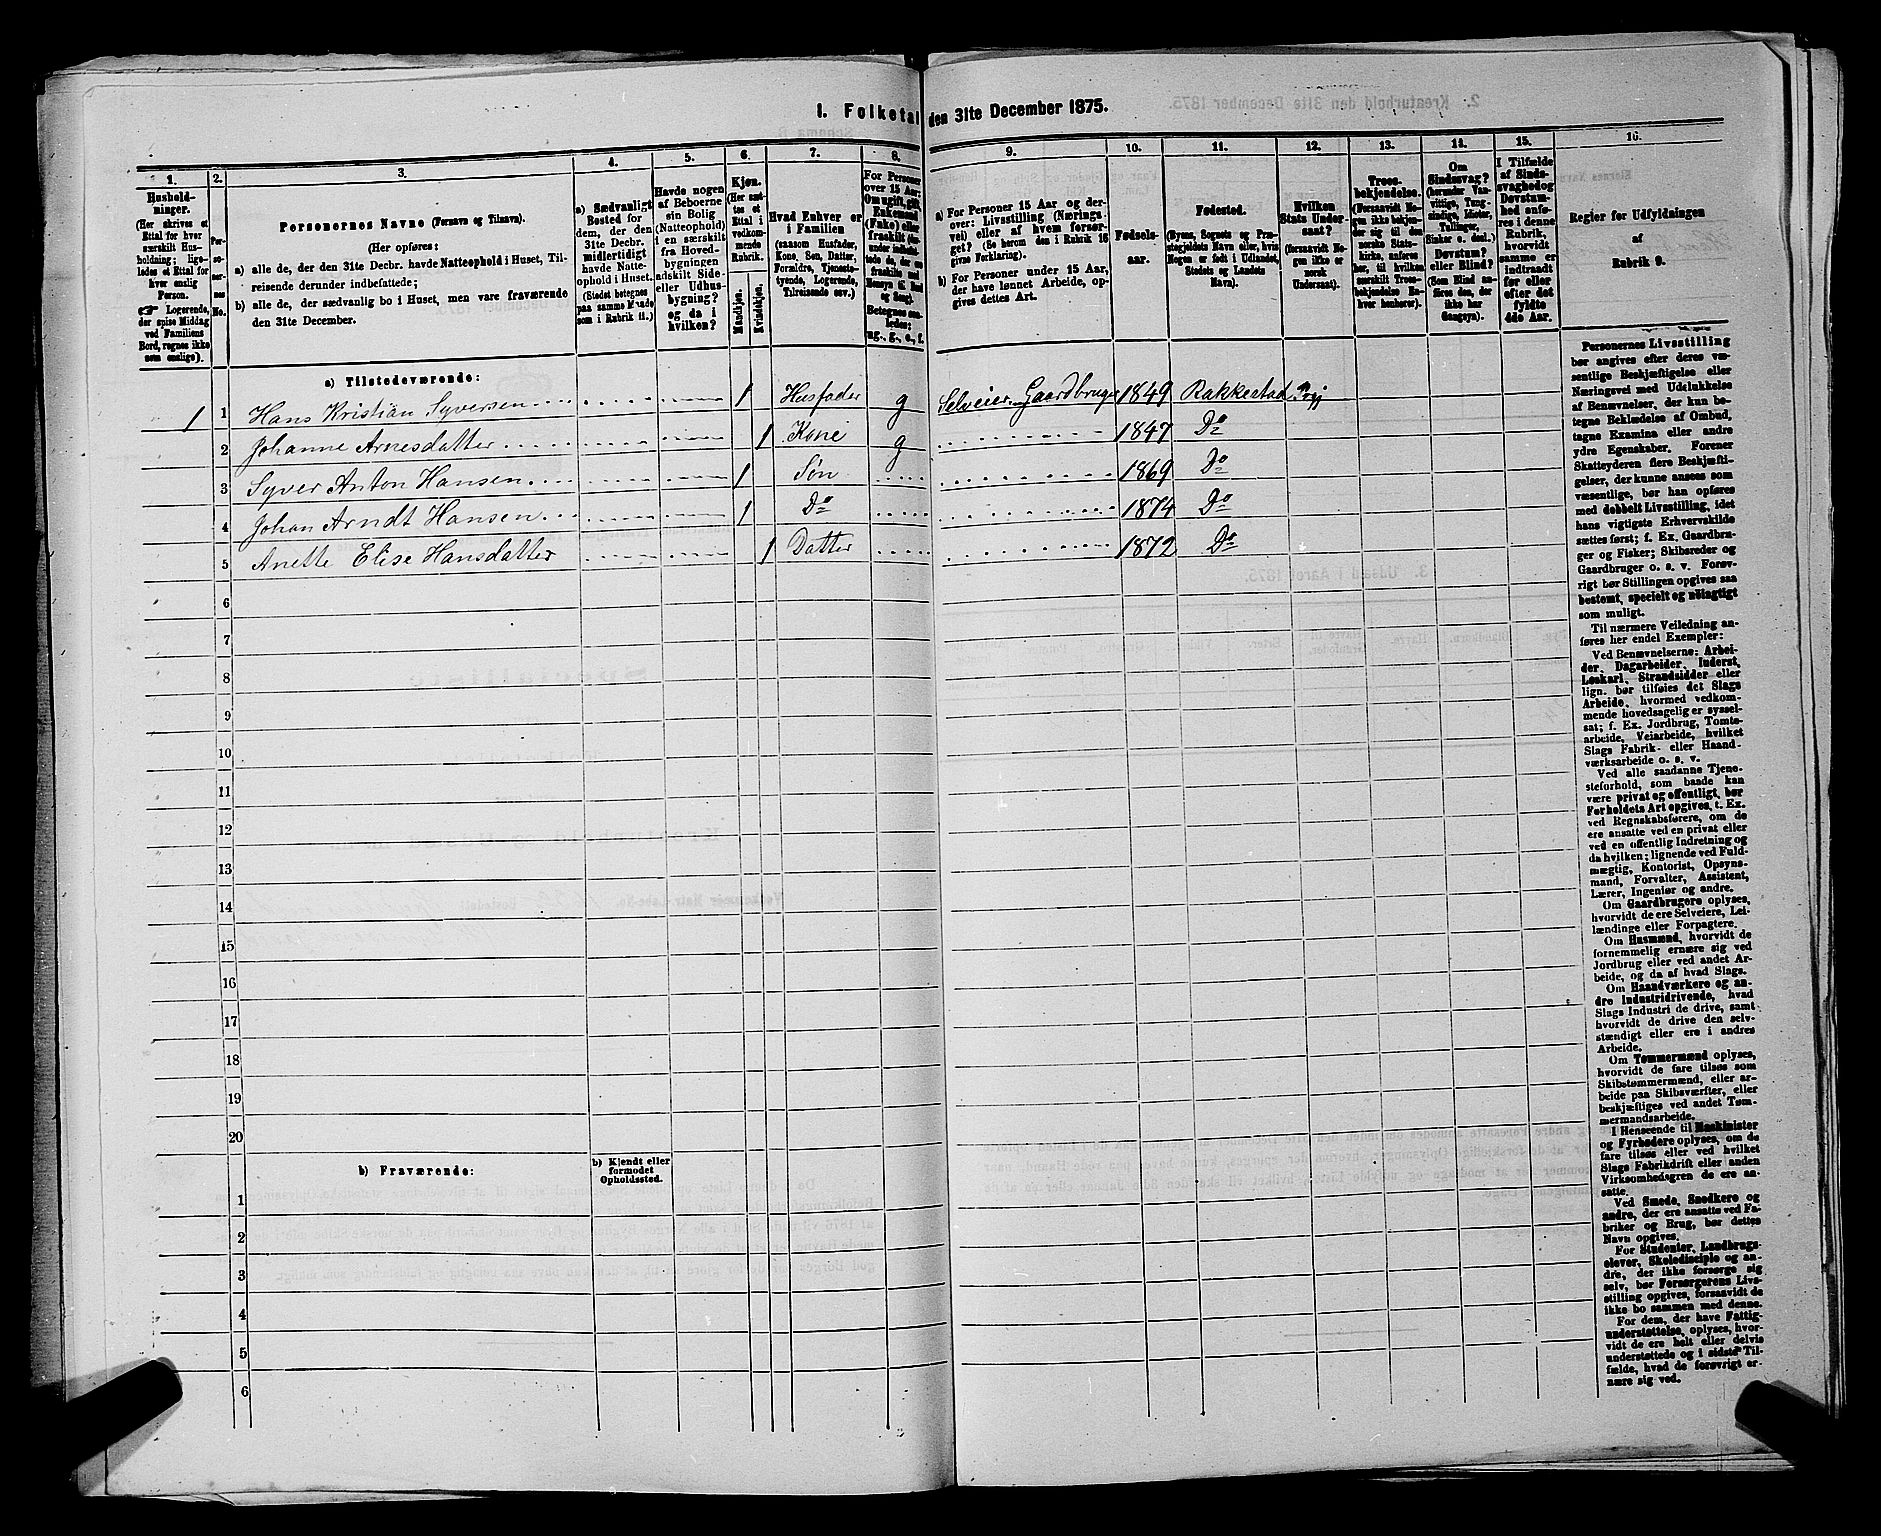 1. Folketal den 31te December 1875.
1. 2. 3. 4. 5. 6. 7. 8. 9. 10. 11. 12. 13. 14. 15. 16.
Hushold-
ninger.
(Her skrives et
Ettal for hver
særskilt Hus-
holdning; lige-
ledes et Ettal for
hver enslig
Person.
☞ Logerende,
der spise Middag
ved Familiens
Bord, regnes ikke
som enslige).
Per-
so-
ner-
nes
No.
Personernes Navne (Fornavn og Tilnavn).
(Her opføres:
a) alle de, der den 31te Decbr. havde Natteophold i Huset, Til-
reisende derunder indbefattede;
b) alle de, der sædvanlig bo i Huset, men vare fraværende
den 31te December.
a) Sædvanligt
Bosted for
dem, der den
31te Decbr.
midlertidigt
havde Natte-
ophold i Huset.
(Stedet betegnes
paa samme Maade
som i Rubrik 11.)
Havde nogen
af Beboerne
sin Bolig
(Natteophold)
i en særskilt
fra Hoved-
bygningen
adskilt Side-
eller Udhus-
bygning?
og da i
hvilken?
Kjøn.
(Her sæt-
tes et
Ettal i
vedkom-
mende
Rubrik.
Mandkjøn.
Kvindekjøn.
Hvad Enhver er
i Familien
(saasom Husfader,
Kone, Søn, Datter,
Forældre, Tjeneste-
tyende, Logerende,
Tilreisende osv.)
For Personer
over 15 Aar:
Om ugift, gift,
Enkemand
(Enke) eller
fraskilt
Betegnes saa-
ledes:
ug., g., e., f.
a) For Personer 15 Aar og der-
over: Livsstilling (Nærings-
vei) eller af hvem forsør-
get? (Se herom den i Rubrik 16
givne Forklaring).
b) For Personer under 15 Aar,
der have lønnet Arbeide, op-
gives dettes Art.
Fødsels-
aar.
Fødested.
(Byens, Sognets og Præ-
stegjeldets Navn eller, hvis
Nogen er født i Udlandet,
Stedets og Landets
Navn).
Hvilken
Stats Under-
saat?
(forsaavidt No-
gen ikke er
norsk
Undersaat).
Troes-
bekjendelse.
(Forsaavidt No-
gen ikke bekjen-
der sig til den
norske Stats-
kirke, anføres
her, til hvilken
særskilt Troes-
bekjendelse En-
hver henhører).
Om
Sindssvag?
(herunder Van-
vittige, Tung-
sindige, Idioter,
Tullinger,
Sinker o. desl.)
Døvstum?
eller Blind?
(Som Blind an-
føres den, der
ikke har
Gangsyn).
I Tilfælde
af Sinds-
svaghed og
Døvstum-
hed anfø-
res i denne
Rubrik,
hvorvidt
samme er
indtraadt
før eller
efter det
fyldte
4de Aar.
Regler for Udfyldningen
af
Rubrik 9.
a) Tilstedeværende:
1 1 Hans Kristian Syversen 1 Husfader g Selveier Gaardbruger 1849 Rakkestad Prgj
2 Johanne Arnesdatter 1 Kone g 1847 Do
3 Syver Anton Hansen 1 Søn 1869 Do
4 Johan Arndt Hansen 1 Do 1874 Do
5 Anette Elise Hansdatter 1 Datter 1872 Do
6
7
8
9
10
11
12
13
14
15
16
17
18
19
20
b) Fraværende:
b) Kjendt eller
formodet
Opholdssted.
1
2
3
4
5
6
Personernes Livsstilling
bør angives efter deres væ-
sentlige Beskjæftigelse eller
Næringsvei med Udelukkelse
af Benævnelser, der kun be-
tegne Beklædelse af Ombud,
tagne Examina eller andre
ydre Egenskaber. Forener
Skatteyderen flere Beskjæfti-
gelser, der kunne ansees som
væsentlige, bør han opføres
med dobbelt Livsstilling, idet
hans vigtigste Erhvervskilde
sættes først; f. Ex. Gaardbru-
ger og Fisker; Skibsreder og
Gaardbruger o. s. v. Forøv-
rigt bør Stillingen opgives saa
bestemt, specielt og nøiagtigt
som muligt.
Til nærmere Veiledning an-
føres her endel Exempler:
Ved Benævnelserne: Arbei-
der, Dagarbeider, Inderst,
Løskarl, Strandsidder eller
lign. bør tilføies det Slags
Arbeide, hvormed vedkom-
mende hovedsagelig er syssel-
sat; f. Ex. Jordbrug, Tomte-
arbeide, Veiarbeide, hvilket
Slags Fabrik- eller Haand-
værksarbeide o. s. v.
Ved alle saadanne Tjene-
steforhold, som baade kan
være privat og offentligt, bør
Forholdets Art opgives, t. Ex.
ved Regnskabsførere, om de
ere ansatte ved en privat eller
ved en offentlig Indretning og
da hvilken; lignende ved Fuld-
mægtig, Kontorist, Opsyns-
mand, Forvalter, Assistent,
Lærer, Ingeniør og andre.
Om Gaardbrugere oplyses,
hvorvidt de ere Selveiere, Lei-
lændinge eller Forpagtere.
Om Husmænd, hvorvidt de
fornemmelig ernære sig ved
Jordbrug eller ved andet Ar-
beide, og da af hvad Slags.
Om Haandværkere og an-
dre Industridrivende, hvad
Slags Industri de drive, samt
hvorvidt de drive den selv-
stændigt eller ere i andres
Arbeide.
Om Tømmermænd oplyses,
hvorvidt de fare tilsøs som
Skibstømmermænd, eller ar-
beide paa Skibsværfter, eller
beskjæftiges ved andet Tøm-
mermandsarbeide.
I Henseende til Maskinister
og Fyrbødere oplyses, om de
fare tilsøs eller ved hvilket
Slags Fabrikdrift eller anden
Virksomhedsgren de ere an-
satte.
Ved Smede, Snedkere og
andre, der ere ansatte ved Fa-
briker og Brug, bør dettes
Navn opgives.
For Studenter, Landbrugs-
elever, Skoledisciple og an-
dre, der ikke forsørge sig
selv, bør Forsørgerens Livs-
stilling opgives, forsaavidt de
ikke bo sammen med denne.
For dem, der have Fattig-
understøttelse, oplyses, hvor-
vidt de ere helt eller delvis
understøttede og i sidste Til-
fælde, hvad de forøvrigt er-
nære sig ved.